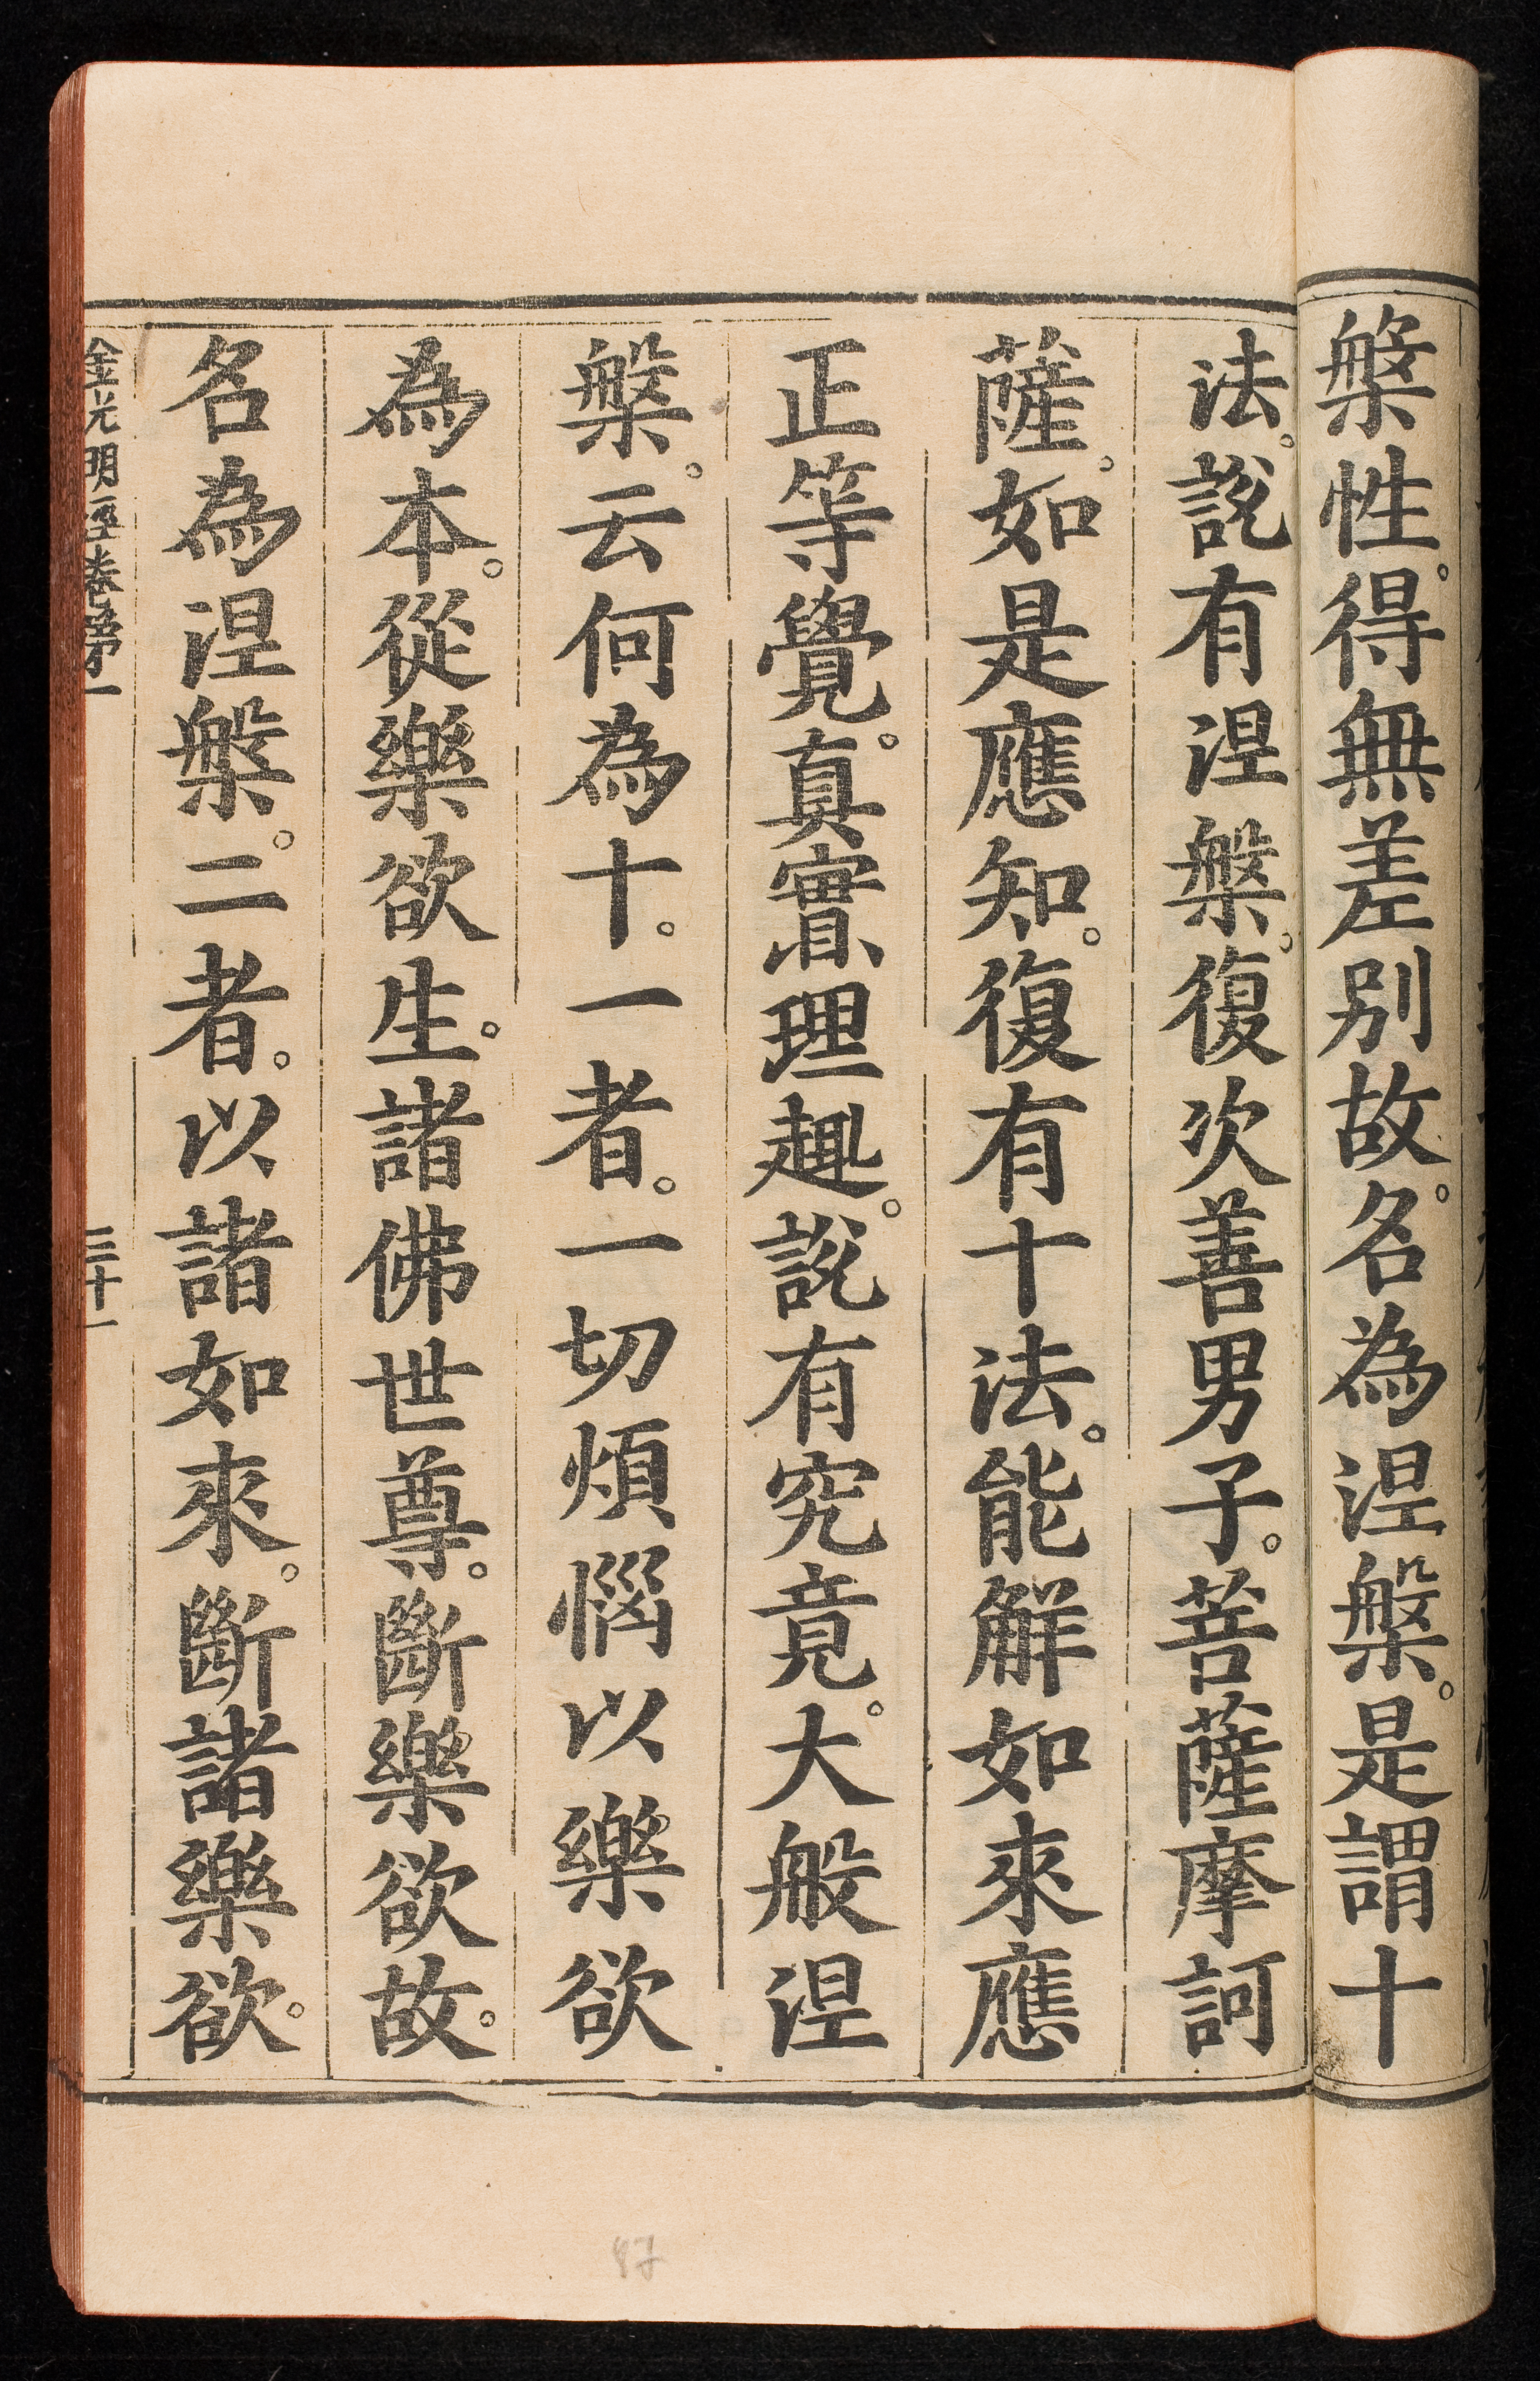 槃性。得無差别故。名為涅槃。是謂十
法。說有涅槃。復次善男子。菩薩摩訶
薩。如是應知。復有十法。能解如來應
正等覺。真實理趣。說有究竟。大般涅
槃。云何為十。一者。一切煩惱以樂欲
為本。從樂欲生。諸佛世尊。斷樂欲故。
名為涅槃。二者。以諸如來。斷諸樂欲。
金光明經卷第一
三十一
87